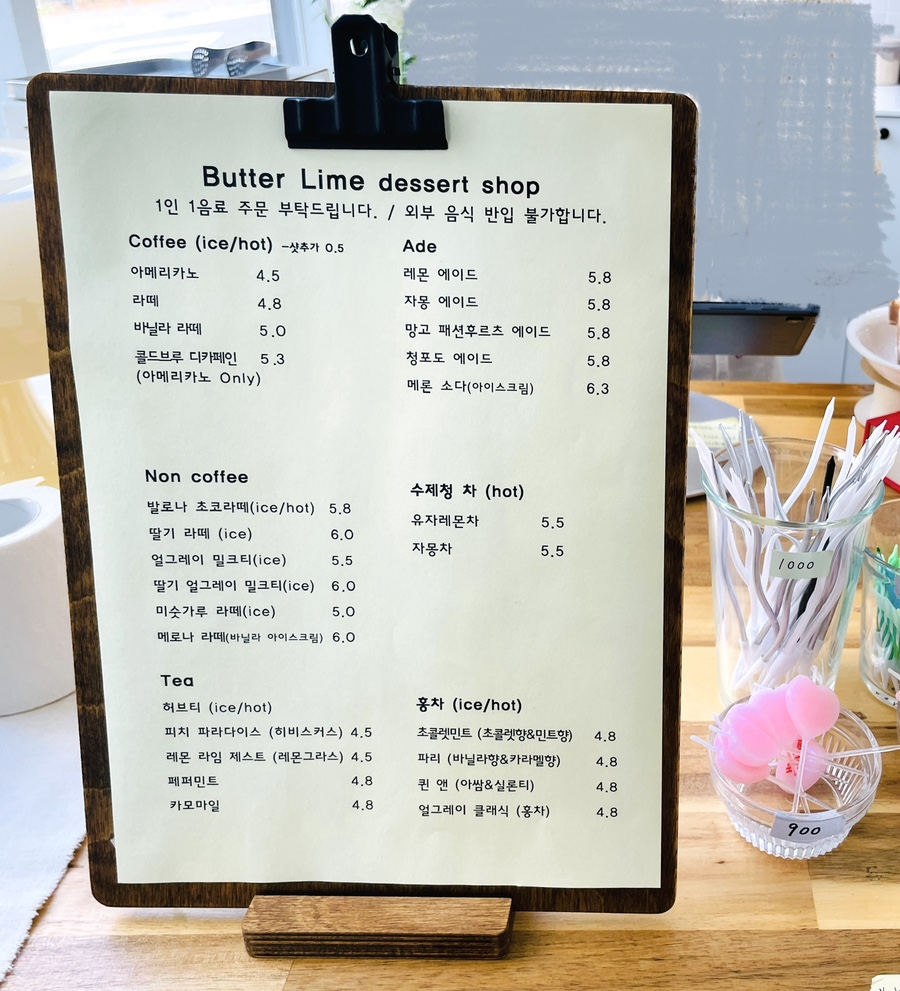 Butter Lime dessert shop
1인 1음료 주문 부탁드립니다. / 외부 음식 반입 불가합니다.
Coffee (ice/hot) -샷추가 0.5
아메리카노 4.5
라떼 4.8
바닐라 라떼 5.0
콜드브루 디카페인 5.3
(아메리카노 Only)
Ade
레몬 에이드 5.8
자몽 에이드 5.8
망고 패션후르츠 에이드 5.8
청포도 에이드 5.8
메론 소다(아이스크림) 6.3
Non coffee
발로나 초코라떼(ice/hot) 5.8
딸기 라떼 (ice) 6.0
얼그레이 밀크티(ice) 5.5
딸기 얼그레이 밀크티(ice) 6.0
미숫가루 라떼(ice) 5.0
메로나 라떼(바닐라 아이스크림) 6.0
수제청 차 (hot)
유자레몬차 5.5
자몽차 5.5
Tea
허브티 (ice/hot)
피치 파라다이스 (히비스커스) 4.5
레몬 라임 제스트 (레몬그라스) 4.5
페퍼민트 4.8
카모마일 4.8
홍차 (ice/hot)
초콜렛민트 (초콜렛향&민트향) 4.8
파리 (바닐라향&카라멜향) 4.8
퀸 앤 (아쌈&실론티) 4.8
얼그레이 클래식 (홍차) 4.8
1000
900